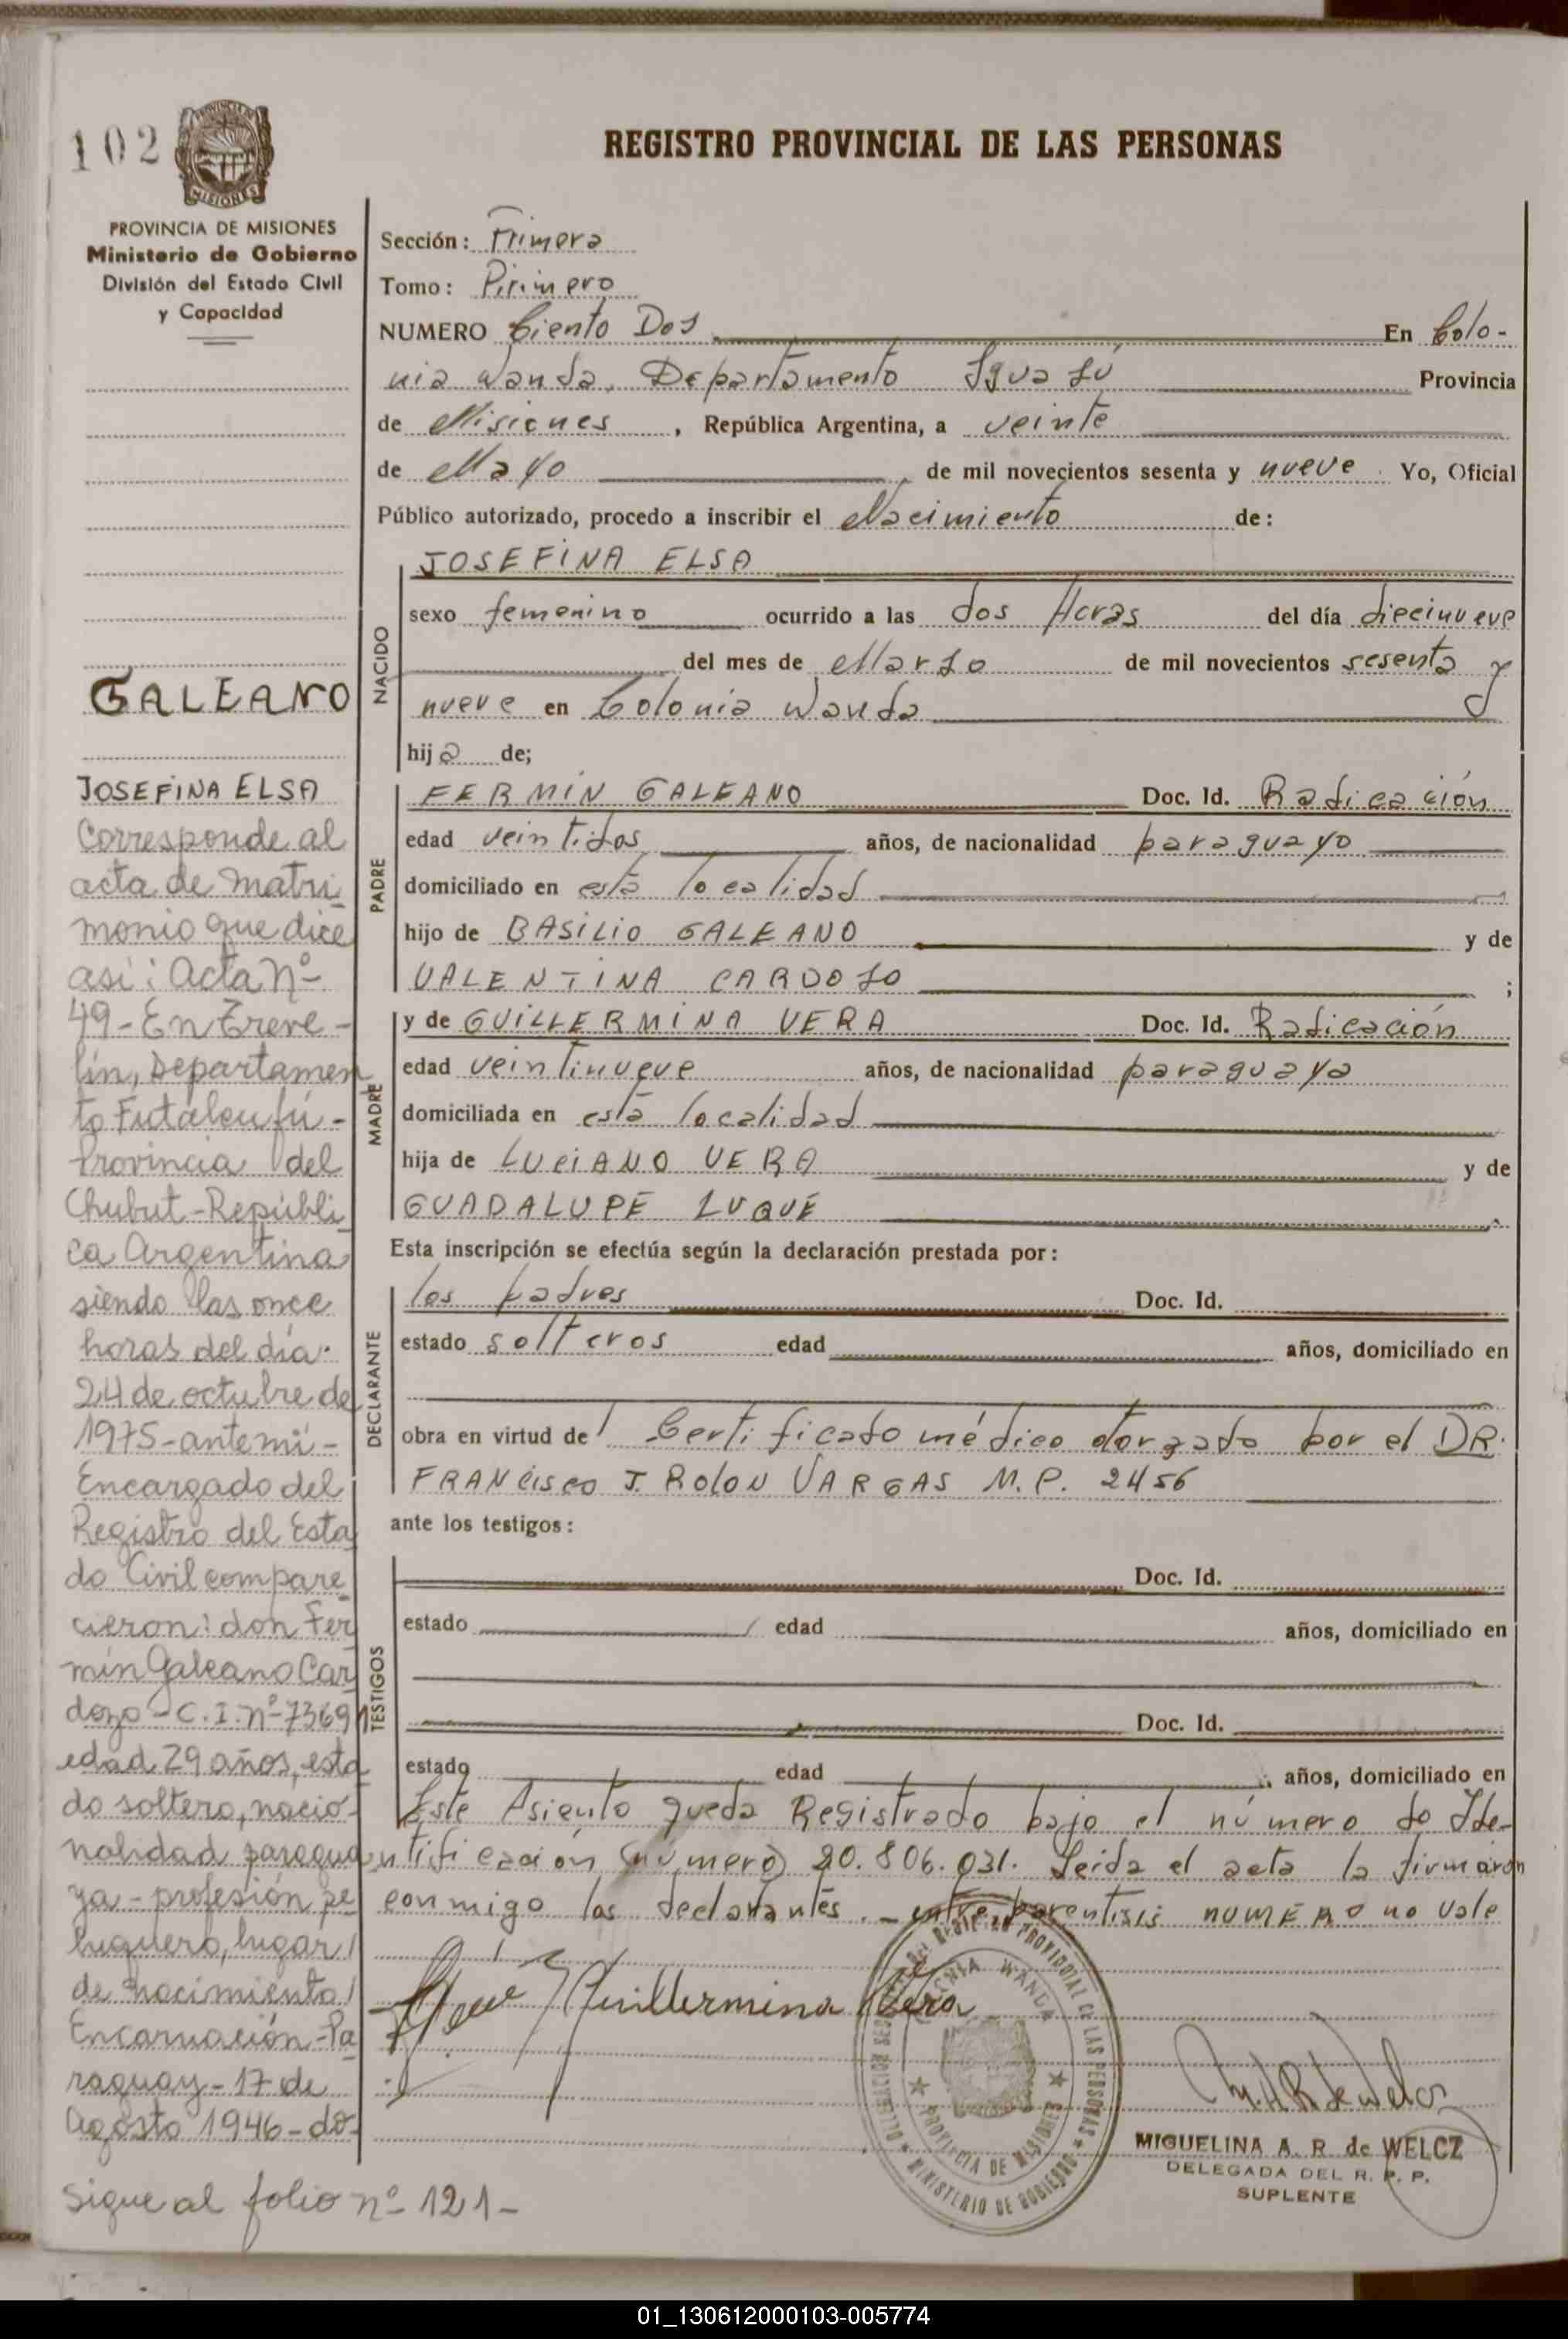 102
PROVINCIA DE MISIONES
Ministerio de Gobierno
División del Estado Civil
y Capacidad
GALEANO
JOSEFINA ELSA
Corresponde al
acta de matri
monio que dice
así: Acta Nº
49 - En Treve-
lín, Departamen
to Futaleufú -
Provincia del
Chubut - Repúbli
ca Argentina
siendo las once
horas del día
24 de octubre de
1975 - ante mí -
Encargado del
Registro del Esta
do Civil compare
cieron: don Fer
mín Galeano Car
dozo - C.I. nº 73691
edad 29 años, esta
do soltero, nacio-
nalidad paragua
ya - profesión pe
luquero, lugar
de nacimiento
Encarnación - Pa
raguay - 17 de
Agosto 1946 - do-
Sigue al folio nº 121 -
REGISTRO PROVINCIAL DE LAS PERSONAS
Sección: Primera
Tomo: Pirimero
NUMERO Ciento Dos En Colo-
nia Wanda, Departamento Iguazú Provincia
de Misiones , República Argentina, a veinte
de Mayo , de mil novecientos sesenta y nueve . Yo, Oficial
Público autorizado, procedo a inscribir el Nacimiento de:
NACIDO
JOSEFINA ELSA
sexo femenino ocurrido a las dos Horas del día diecinueve
del mes de Marzo de mil novecientos sesenta y
nueve en Colonia Wanda
hija de;
PADRE
FERMIN GALEANO Doc. Id. Radicación
edad veintidos años, de nacionalidad paraguayo
domiciliado en esta localidad
hijo de BASILIO GALEANO y de
VALENTINA CARDOZO ;
MADRE
y de GUILLERMINA VERA Doc. Id. Radicación
edad veintinueve años, de nacionalidad paraguaya
domiciliada en esta localidad
hija de LUCIANO VERA y de
GUADALUPE LUQUE
Esta inscripción se efectúa según la declaración prestada por:
DECLARANTE
los padres Doc. Id.
estado solteros edad años, domiciliado en
obra en virtud del Certificado médico otorgado por el DR.
FRANCISCO J. ROLON VARGAS M.P. 2456
ante los testigos:
TESTIGOS
Doc. Id.
estado edad años, domiciliado en
Doc. Id.
estado edad años, domiciliado en
Este Asiento queda Registrado bajo el número de Ide-
ntificación (número) 20.806.031. Leida el acta la firmaron
conmigo los declarantes. - entre parentisis NUMERO no vale
Guillermina Vera
COLONIA WANDA
REGISTRO PROVINCIAL DE LAS PERSONAS
PROVINCIA DE MISIONES
MINISTERIO DE GOBIERNO
M.A.R de Welcz
MIGUELINA A. R. de WELCZ
DELEGADA DEL R. P. P.
SUPLENTE
01_130612000103-005774